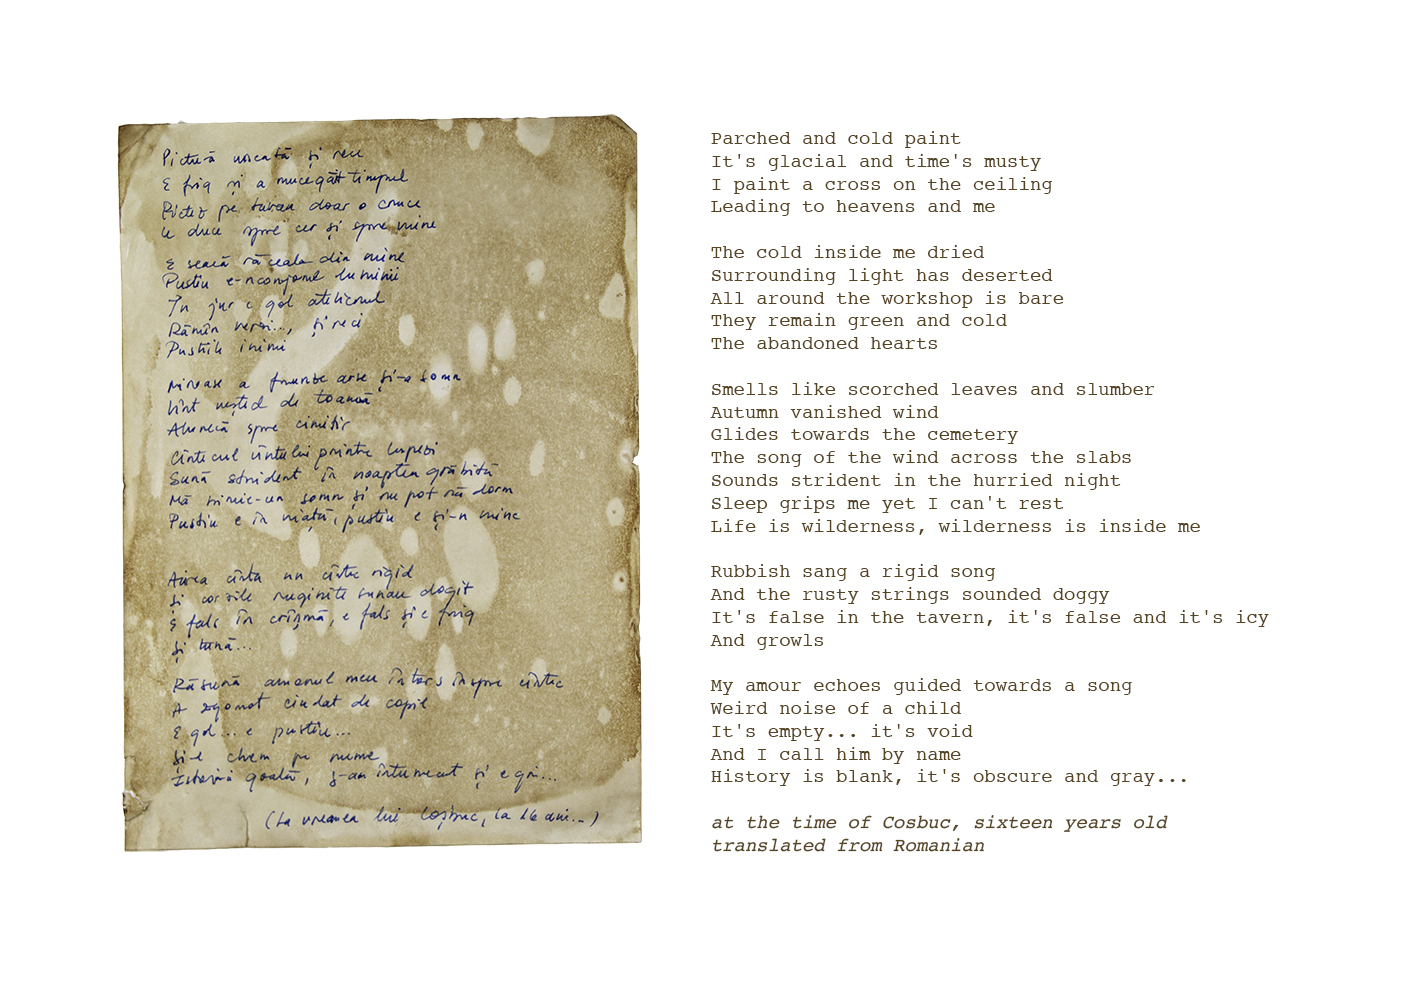 Pictură uscată și rece
E frig și a mucegăit timpul
Pictez pe tavan doar o cruce
Ce duce spre cer și spre mine
E seacă răceala din mine
Pustiu e-nconjorul luminii
În jur e gol atelierul
Rămîn verzi..., și reci
Pustiile inimii
Miroase a frunze arse și-a somn
Vînt veșted de toamnă
Alunecă spre cimitir
Cîntecul vîntului printre lespezi
Sună strident în noaptea grăbită
Mă
somn și nu pot să dorm
Pustiu e în viață, pustiu e și-n mine
cînta un cîntec rigid
Și corzile ruginite sunau dogit
E fals în crîșmă, e fals și e frig
Și tună...
Răsună amorul meu întors înspre cîntec
A zgomot ciudat de copil
E gol... e pustiu...
Și-l chem pe nume
goală, s-an întunecat și e gri...
(La vremea lui Coșbuc, la 16 ani...)
Parched and cold paint
It's glacial and time's musty
I paint a cross on the ceiling
Leading to heavens and me
The cold inside me dried
Surrounding light has deserted
All around the workshop is bare
They remain green and cold
The abandoned hearts
Smells like scorched leaves and slumber
Autumn vanished wind
Glides towards the cemetery
The song of the wind across the slabs
Sounds strident in the hurried night
Sleep grips me yet I can't rest
Life is wilderness, wilderness is inside me
Rubbish sang a rigid song
And the rusty strings sounded doggy
It's false in the tavern, it's false and it's icy
And growls
My amour echoes guided towards a song
Weird noise of a child
It's empty... it's void
And I call him by name
History is blank, it's obscure and gray...
at the time of Cosbuc, sixteen years old
translated from Romanian